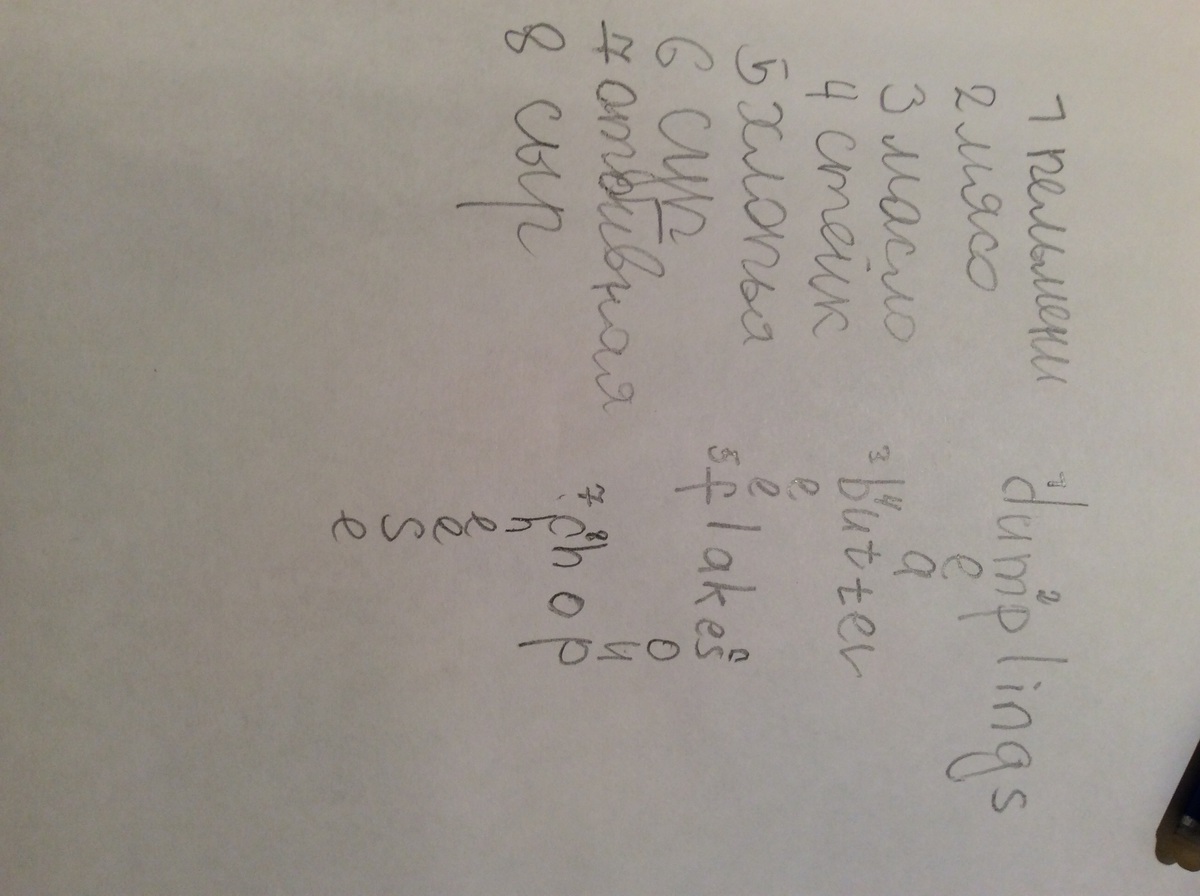 1 пельмени
2 мясо
3 масло
4 стейк
5 хлопья
6 суп
7 отбивная
8 сыр
1 dumplings 2
e
a
3 butter 4
e
e
5 flakes
o
u
7 chop 8
h
e
e
s
e